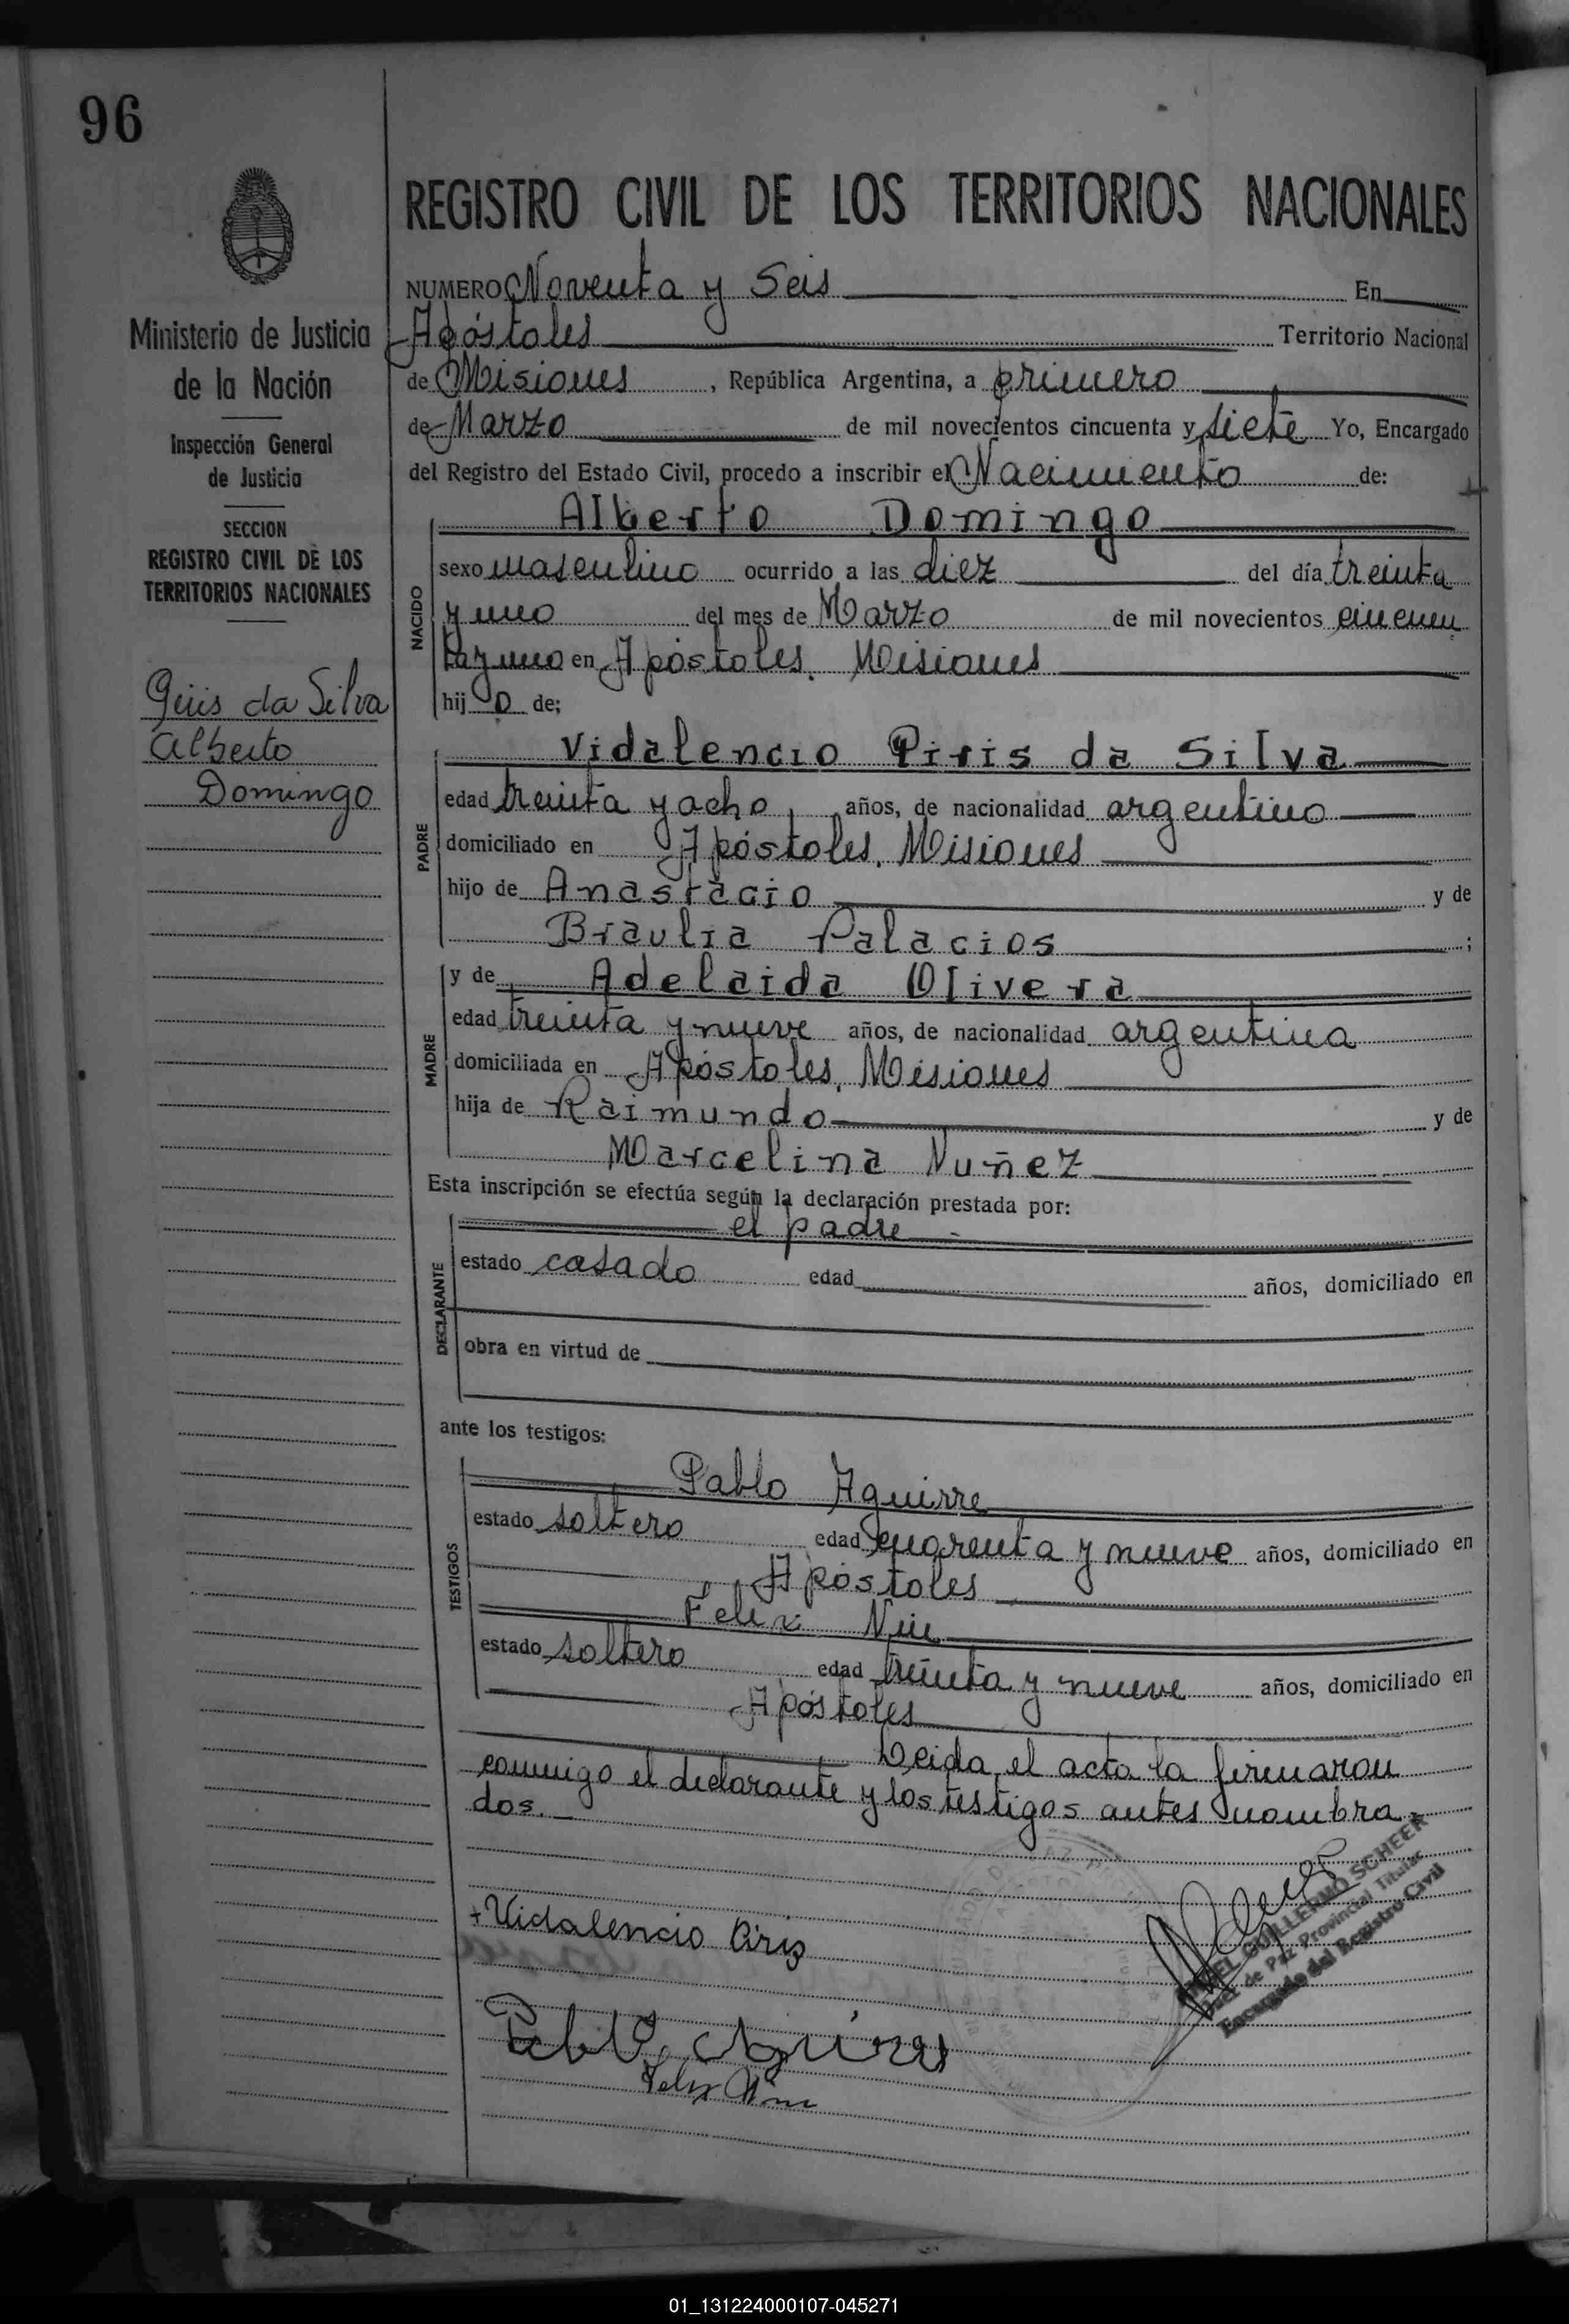 96
REGISTRO CIVIL DE LOS TERRITORIOS NACIONALES
Ministerio de Justicia
de la Nación
Inspección General
de Justicia
SECCION
REGISTRO CIVIL DE LOS
TERRITORIOS NACIONALES
da Silva
Alberto
Domingo
NUMERO Noventa y Seis En
Apóstoles Territorio Nacional
de Misiones, República Argentina, a primero
de Marzo de mil novecientos cincuenta y siete Yo, Encargado
del Registro del Estado Civil, procedo a inscribir el Nacimiento de:
NACIDO
Alberto Domingo
sexo masculino ocurrido a las diez del día treinta
y uno del mes de Marzo de mil novecientos cincuen
ta y uno en Apóstoles. Misiones
hij o de;
PADRE
Vidalencio Piris da Silva
edad treinta y ocho años, de nacionalidad argentino
domiciliado en Apóstoles, Misiones
hijo de Anastacio y de
Braulia Palacios;
MADRE
y de Adelaida Olivera
edad treinta y nueve años, de nacionalidad argentina
domiciliada en Apóstoles, Misiones
hija de Raimundo y de
Marcelina Nuñez
Esta inscripción se efectúa según la declaración prestada por:
DECLARANTE
el padre
estado casado edad años, domiciliado en
obra en virtud de
ante los testigos:
TESTIGOS
Pablo Aguirre
estado soltero edad cuarenta y nueve años, domiciliado en
Apóstoles
Felix
estado soltero edad treinta y nueve años, domiciliado en
Apóstoles
Leida el acta la firmaron
conmigo el declarante y los testigos antes nombra
dos.
+Vidalencio Piriz
GUILLERMO SCHEER
Juez de Paz Provincial Titular
Encargado del Registro Civil
Pablo Aguirre
Felix
01_131224000107-045271